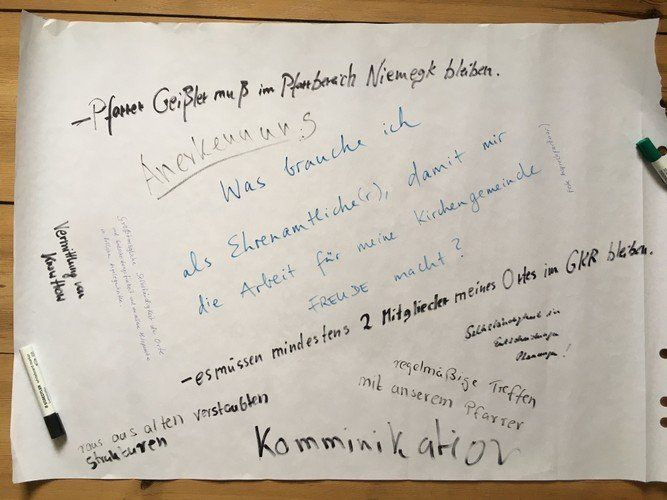 - Pfarrer Geißler muß im Pfarrbereich Niemegk bleiben.
Anerkennung
Was brauche ich
als Ehrenamtliche(r), damit mir
die Arbeit für meine Kirchengemeinde
FREUDE macht?
Vermittlung von
Know How
Größtmögliche Selbständigkeit der Orte
- es müssen mindestens 2 Mitglieder meines Ortes im GKR bleiben.
Selbständigkeit in
Entscheidungen
Planungen!
regelmäßige Treffen
mit unserem Pfarrer
raus aus alten verstaubten
Strukturen
Komminikation